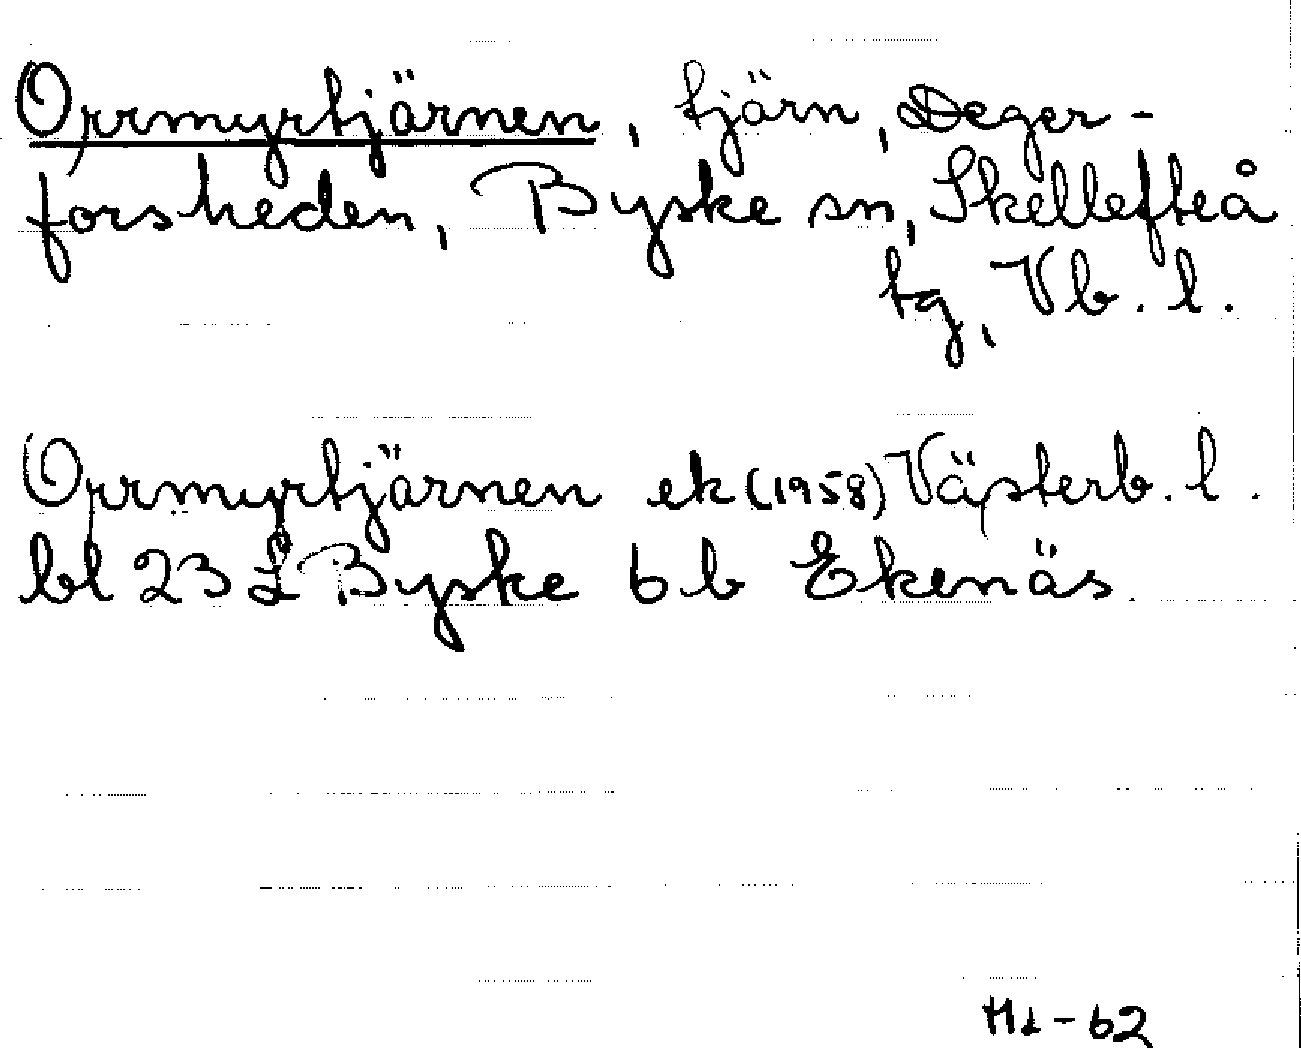 Orrmyrtjärnen, tjärn, Deger-
forsheden, Byske sn, Skellefteå
tg, Vb. l.
Orrmyrtjärnen ek (1958) Västerb. l.
bl 23 L Byske 6 b Ekenäs.
-62